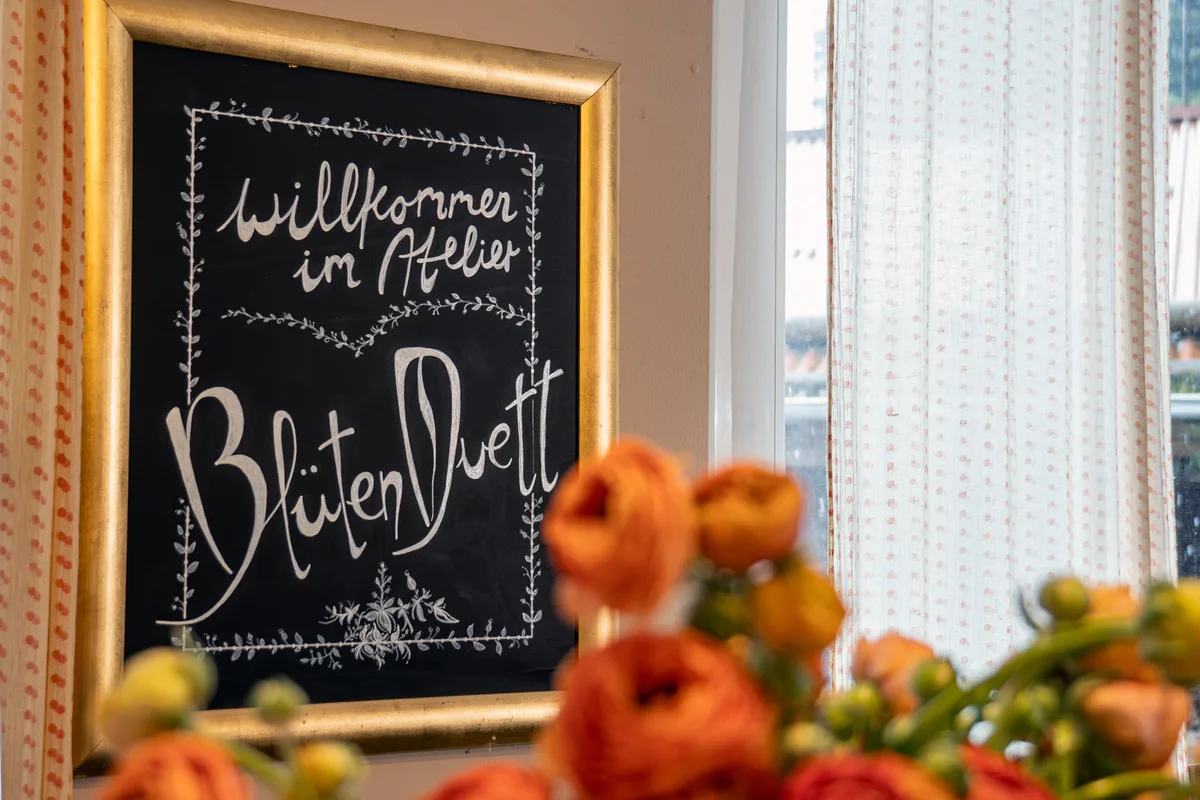 Willkommen
im Atelier
BlütenDuett